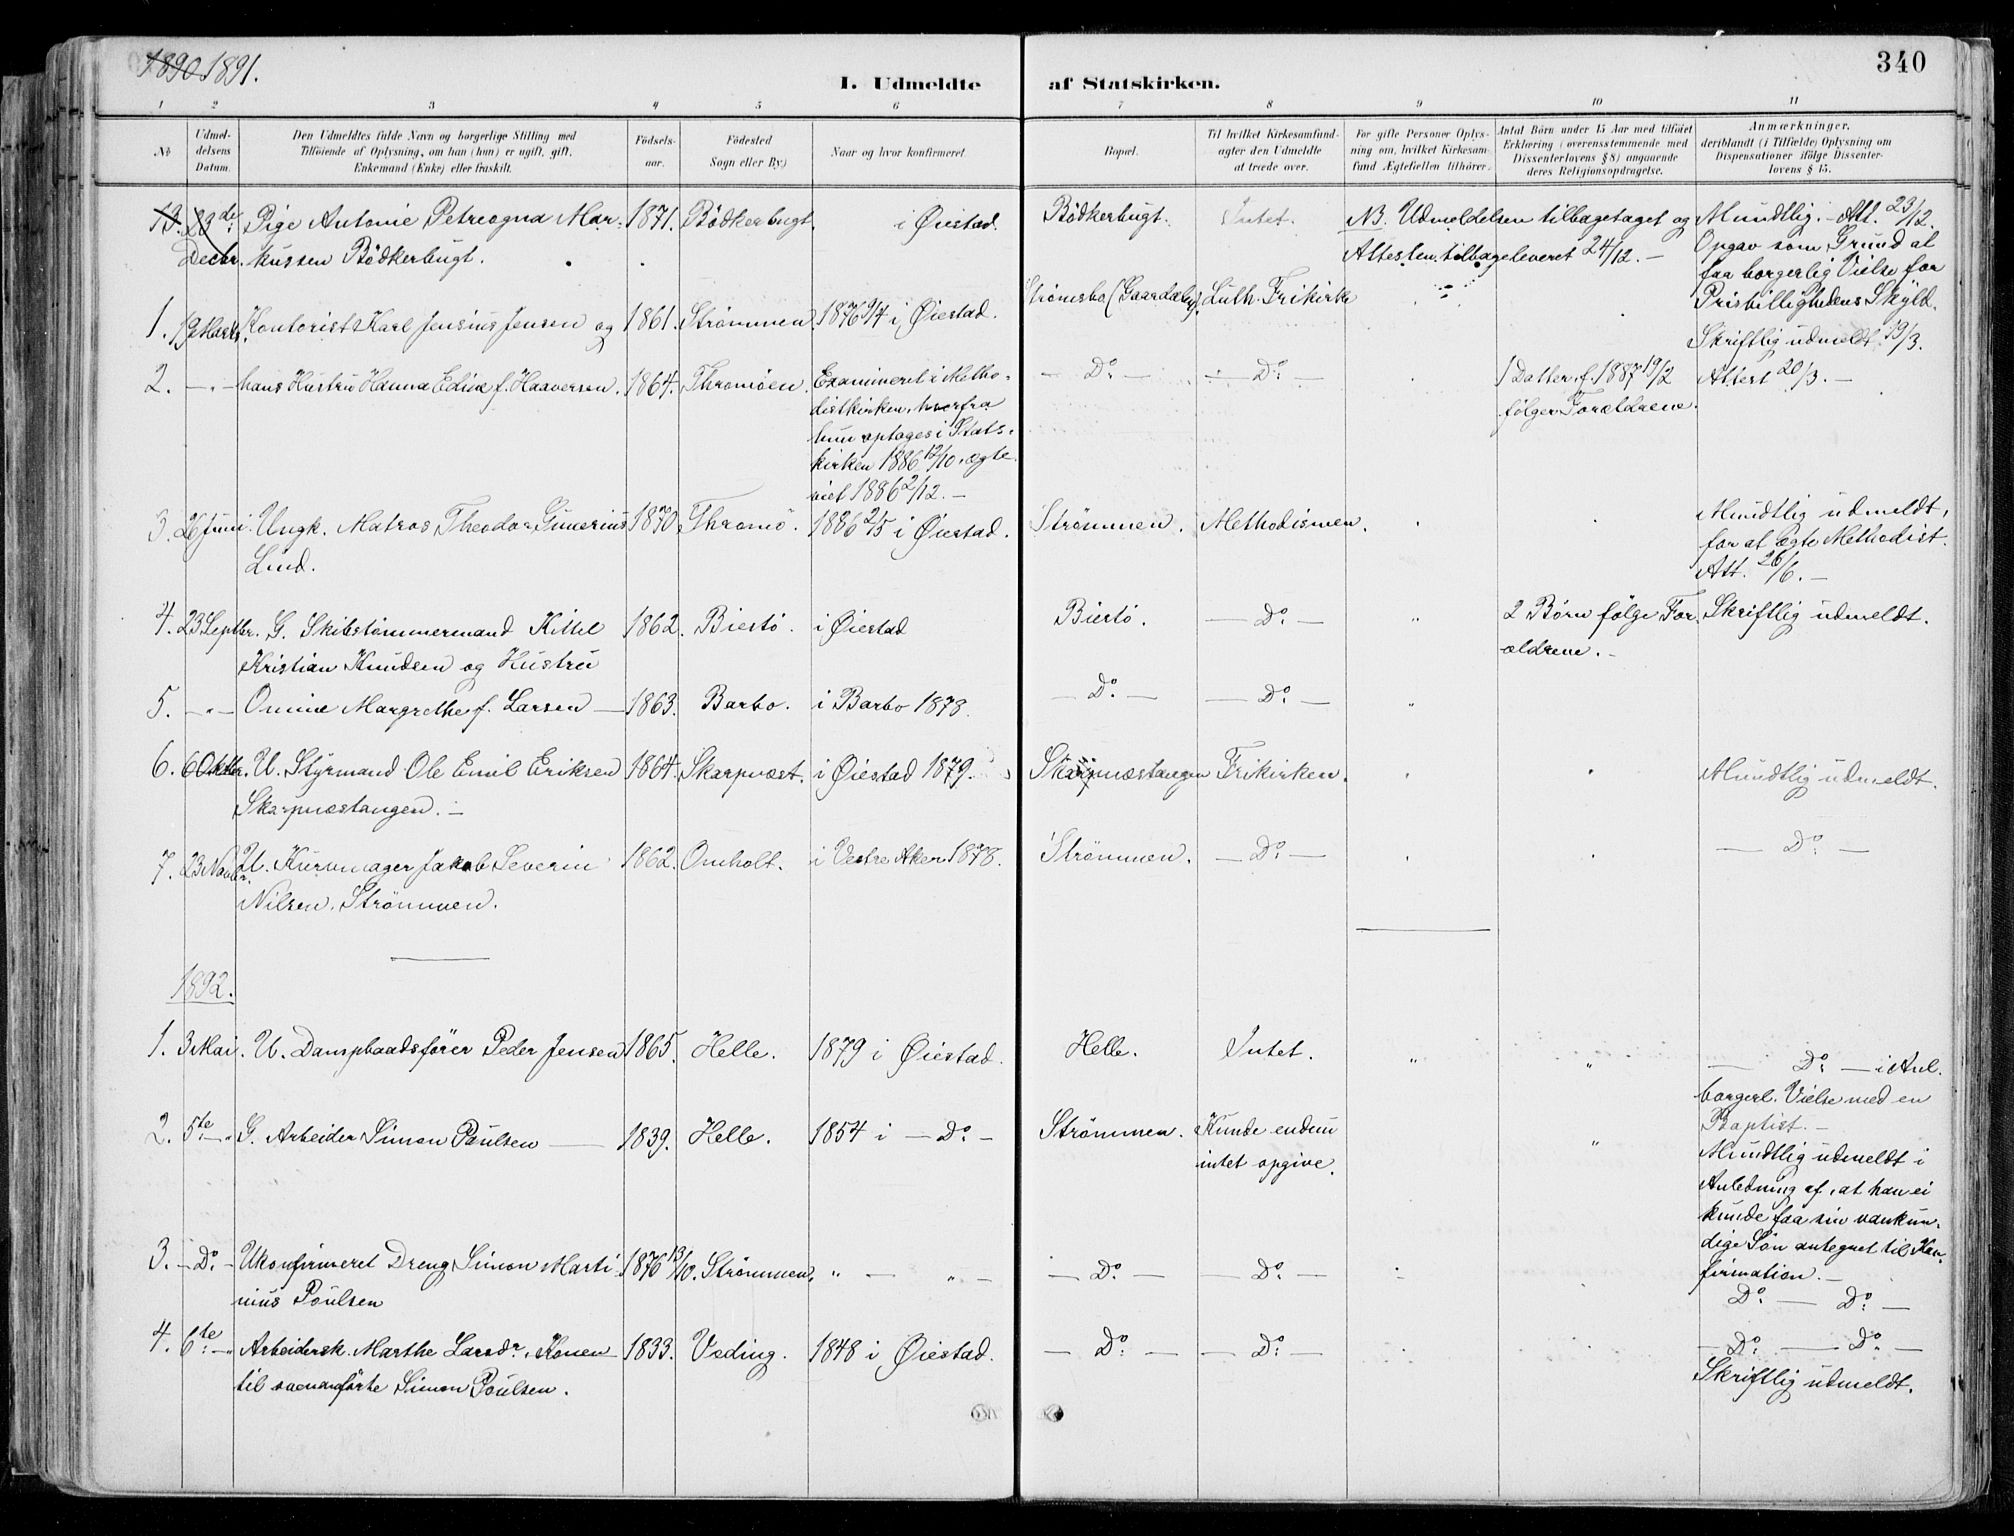 1890 1891.
340
I. Udmeldte af Statskirken.
1 2 3 4 5 6 7 8 9 10 11
№
Udmel-
delsens
Datum.
Den Udmeldtes fulde Navn og borgerlige Stilling med
Tilföiende af Oplysning, om han (hun) er ugift, gift,
Enkemand (Enke) eller fraskilt.
Födsels-
aar.
Födested
Sogn eller By.)
Naar og hvor konfirmeret
Bopæl.
Til hvilket Kirkesamfund-
agter den Udmeldte
at træde over.
For gifte Personer Oplys-
ning om, hvilket Kirkesam-
fund Ægtefællen tilhörer.
Antal Börn under 15 Aar med tilföiet
Erklæring (overensstemmende med
Dissenterlovens § 8) angaaende
deres Religionsopdragelse.
Anmærkninger.
deriblandt (i Tilfælde) Oplysning om
Dispensationer ifölge Dissenter-
lovens § 15.
13. 23de Decbr. Pige Antonie Petreagna Mar-
kussen Bödkerbugt.
1871. Bödkerbugt. i Øiestad.
Bödkerbugt. Intet.
NB. Udmeldelsen tilbagetaget og
Attesten tilbageleveret 24/12. –
Mundtlig. – Att. 23/12.
Opgav som Grund at
faa borgerlig Vielse for
Prisbillighedens Skyld.
1. 19 Marts. Kontorist Karl Jensius Jensen og 1861. Strömmen. 1876 9/4 i Øiestad.
Strömsbo (Gaardalen). Luth. Frikirke
Skriftlig udmeldt 19/3.
2. – " – hans Hustru Hanna Edine f. Haaversen. 1864. Thromöen.
Examineret i Metho-
distkirken, hvorfra
hun optoges i Stats-
kirken 1886 12/10, ægte-
viet 1886 2/12. –
– Do – – Do –
1 Datter, f. 1887 19/2
følger Forældrene.
Attest 20/3. –
3. 26 Juni. Ungk. Matros Theodor Gunerius
Lind.
1870. Thromö. 1886 2/5 i Øiestad.
Strömmen. Methodismen.
Mundtlig udmeldt,
for at ægte Methodist.
Att. 26/6. –
4. 23 Septbr. G. Skibstömmermand Kittel
Kristian Knudsen og Hustru
1862. Biestö. i Øiestad
Biestö. – Do – "
2 Börn følge For-
ældrene. –
Skriftlig udmeldt.
5. – " – Omine Margrethe f. Larsen – 1863. Barbo. i Barbo 1878.
– Do – – Do – "
6. 6 Oktbr. U. Styrmand Ole Emil Eriksen
Skarpnæstangen. –
1864. Skarpnæst. i Øiestad 1879.
Skarpnæstangen Frikirken.
Mundtlig udmeldt.
7. 23 Novbr. U. Kurvmager Jakob Severin
Nilsen. Strömmen.
1862. Omholt. i Vestre Aker 1878.
Strömmen. – Do –
– Do –
1892.
1. 3 Mai. U. Dampbaadsförer Peder Jensen 1865. Helle. 1879 i Øiestad.
Helle. Intet. " "
– Do – i Anl.
borgerl. Vielse med en
Baptist. –
2. 5te – " G. Arbeider Simon Poulsen – 1839. Helle. 1854 i – Do –
Strömmen. Kunde endnu
intet opgive. "
Mundtlig udmeldt i
Anledning af, at han ei
kunde faa sin vankun-
dige Sön antegnet til Kon-
firmation. –
3. – Do – Ukonfirmeret Dreng Simon Marti-
nius Poulsen
1876 13/10. Strömmen. " – " –
– Do – – Do –
Do – Do –
4. 6te – " Arbeidersk. Marthe Larsdr. Konen
til ovenanförte Simon Poulsen.
1833. Veding. 1848 i Øiestad.
– Do – – Do –
– Do – – Do –
Skriftlig udmeldt.